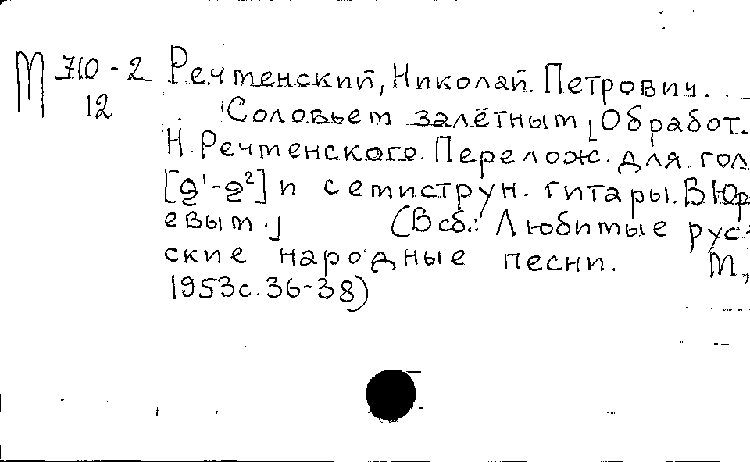 М 710-2 Речменский, Николай Петрович.
12 Соловьем залётным [Обработ.
Н. Речменского. Перелож. для гол.
[g¹-g²] и семиструн. гитары. В Юр
евым.] (В сб.: Любимые рус-
ские народные песни. М.,
1953 с. 36-38)